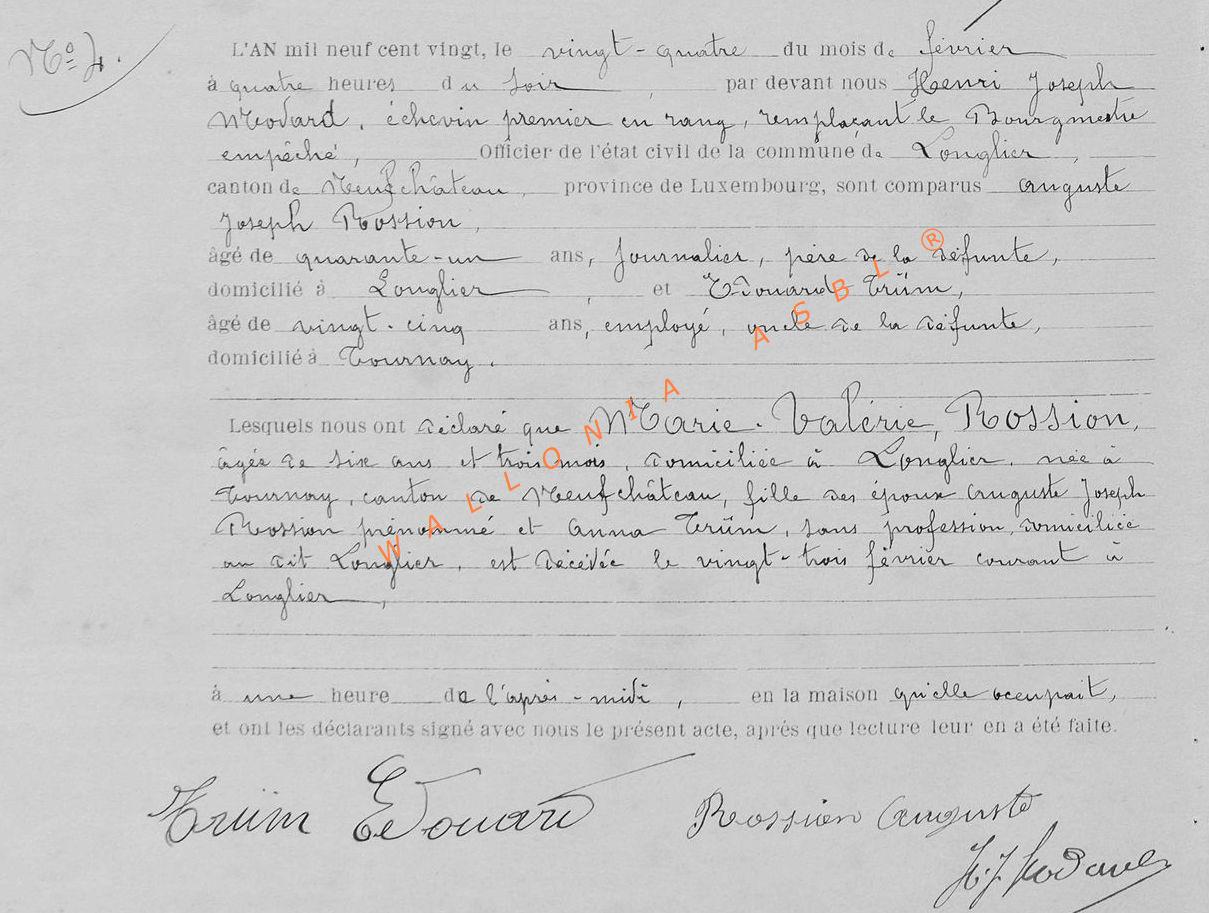 N° 4.
L'AN mil neuf cent vingt, le vingt-quatre du mois de février
à quatre heures du soir, par devant nous Henri Joseph
Modard, échevin premier en rang, remplaçant le Bourgmestre
empêché, Officier de l'état civil de la commune de Longlier,
canton de Neufchâteau, province de Luxembourg, sont comparus Auguste
Joseph Rossion,
âgé de quarante-un ans, journalier, père de la défunte,
domicilié à Longlier, et Edouard Trüm,
âgé de vingt-cinq ans, employé, oncle de la défunte,
domicilié à Tournay.
Lesquels nous ont déclaré que Marie-Valérie, Rossion,
âgée de six ans et trois mois, domiciliée à Longlier, née à
Tournay, canton de Neufchâteau, fille des époux Auguste Joseph
Rossion prénommé et Anna Trüm, sans profession, domiciliée
au dit Longlier, est décédée le vingt-trois février courant à
Longlier,
à une heure de l'après-midi, en la maison qu'elle occupait,
et ont les déclarants signé avec nous le présent acte, après que lecture leur en a été faite.
Trüm Edouard Rossion Auguste
H. J. Modard
WALLONIA ASBL ®